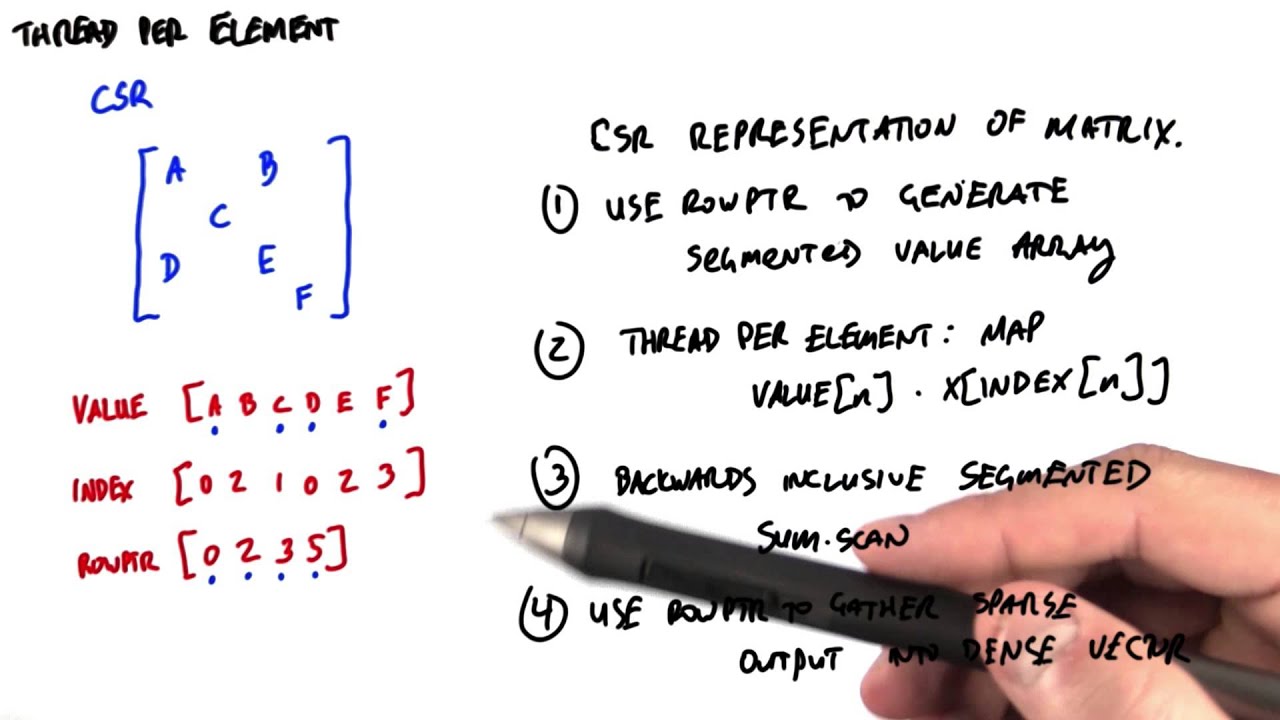 THREAD PER ELEMENT
CSR
A B
C
D E
F
VALUE [A B C D E F]
INDEX [0 2 1 0 2 3]
ROWPTR [0 2 3 5]
CSR REPRESENTATION OF MATRIX.
① USE ROWPTR TO GENERATE
SEGMENTED VALUE ARRAY
② THREAD PER ELEMENT: MAP
VALUE[n] · X[INDEX[n]]
③ BACKWARDS INCLUSIVE SEGMENTED
SUM·SCAN
④ USE ROWPTR TO GATHER SPARSE
OUTPUT INTO DENSE VECTOR